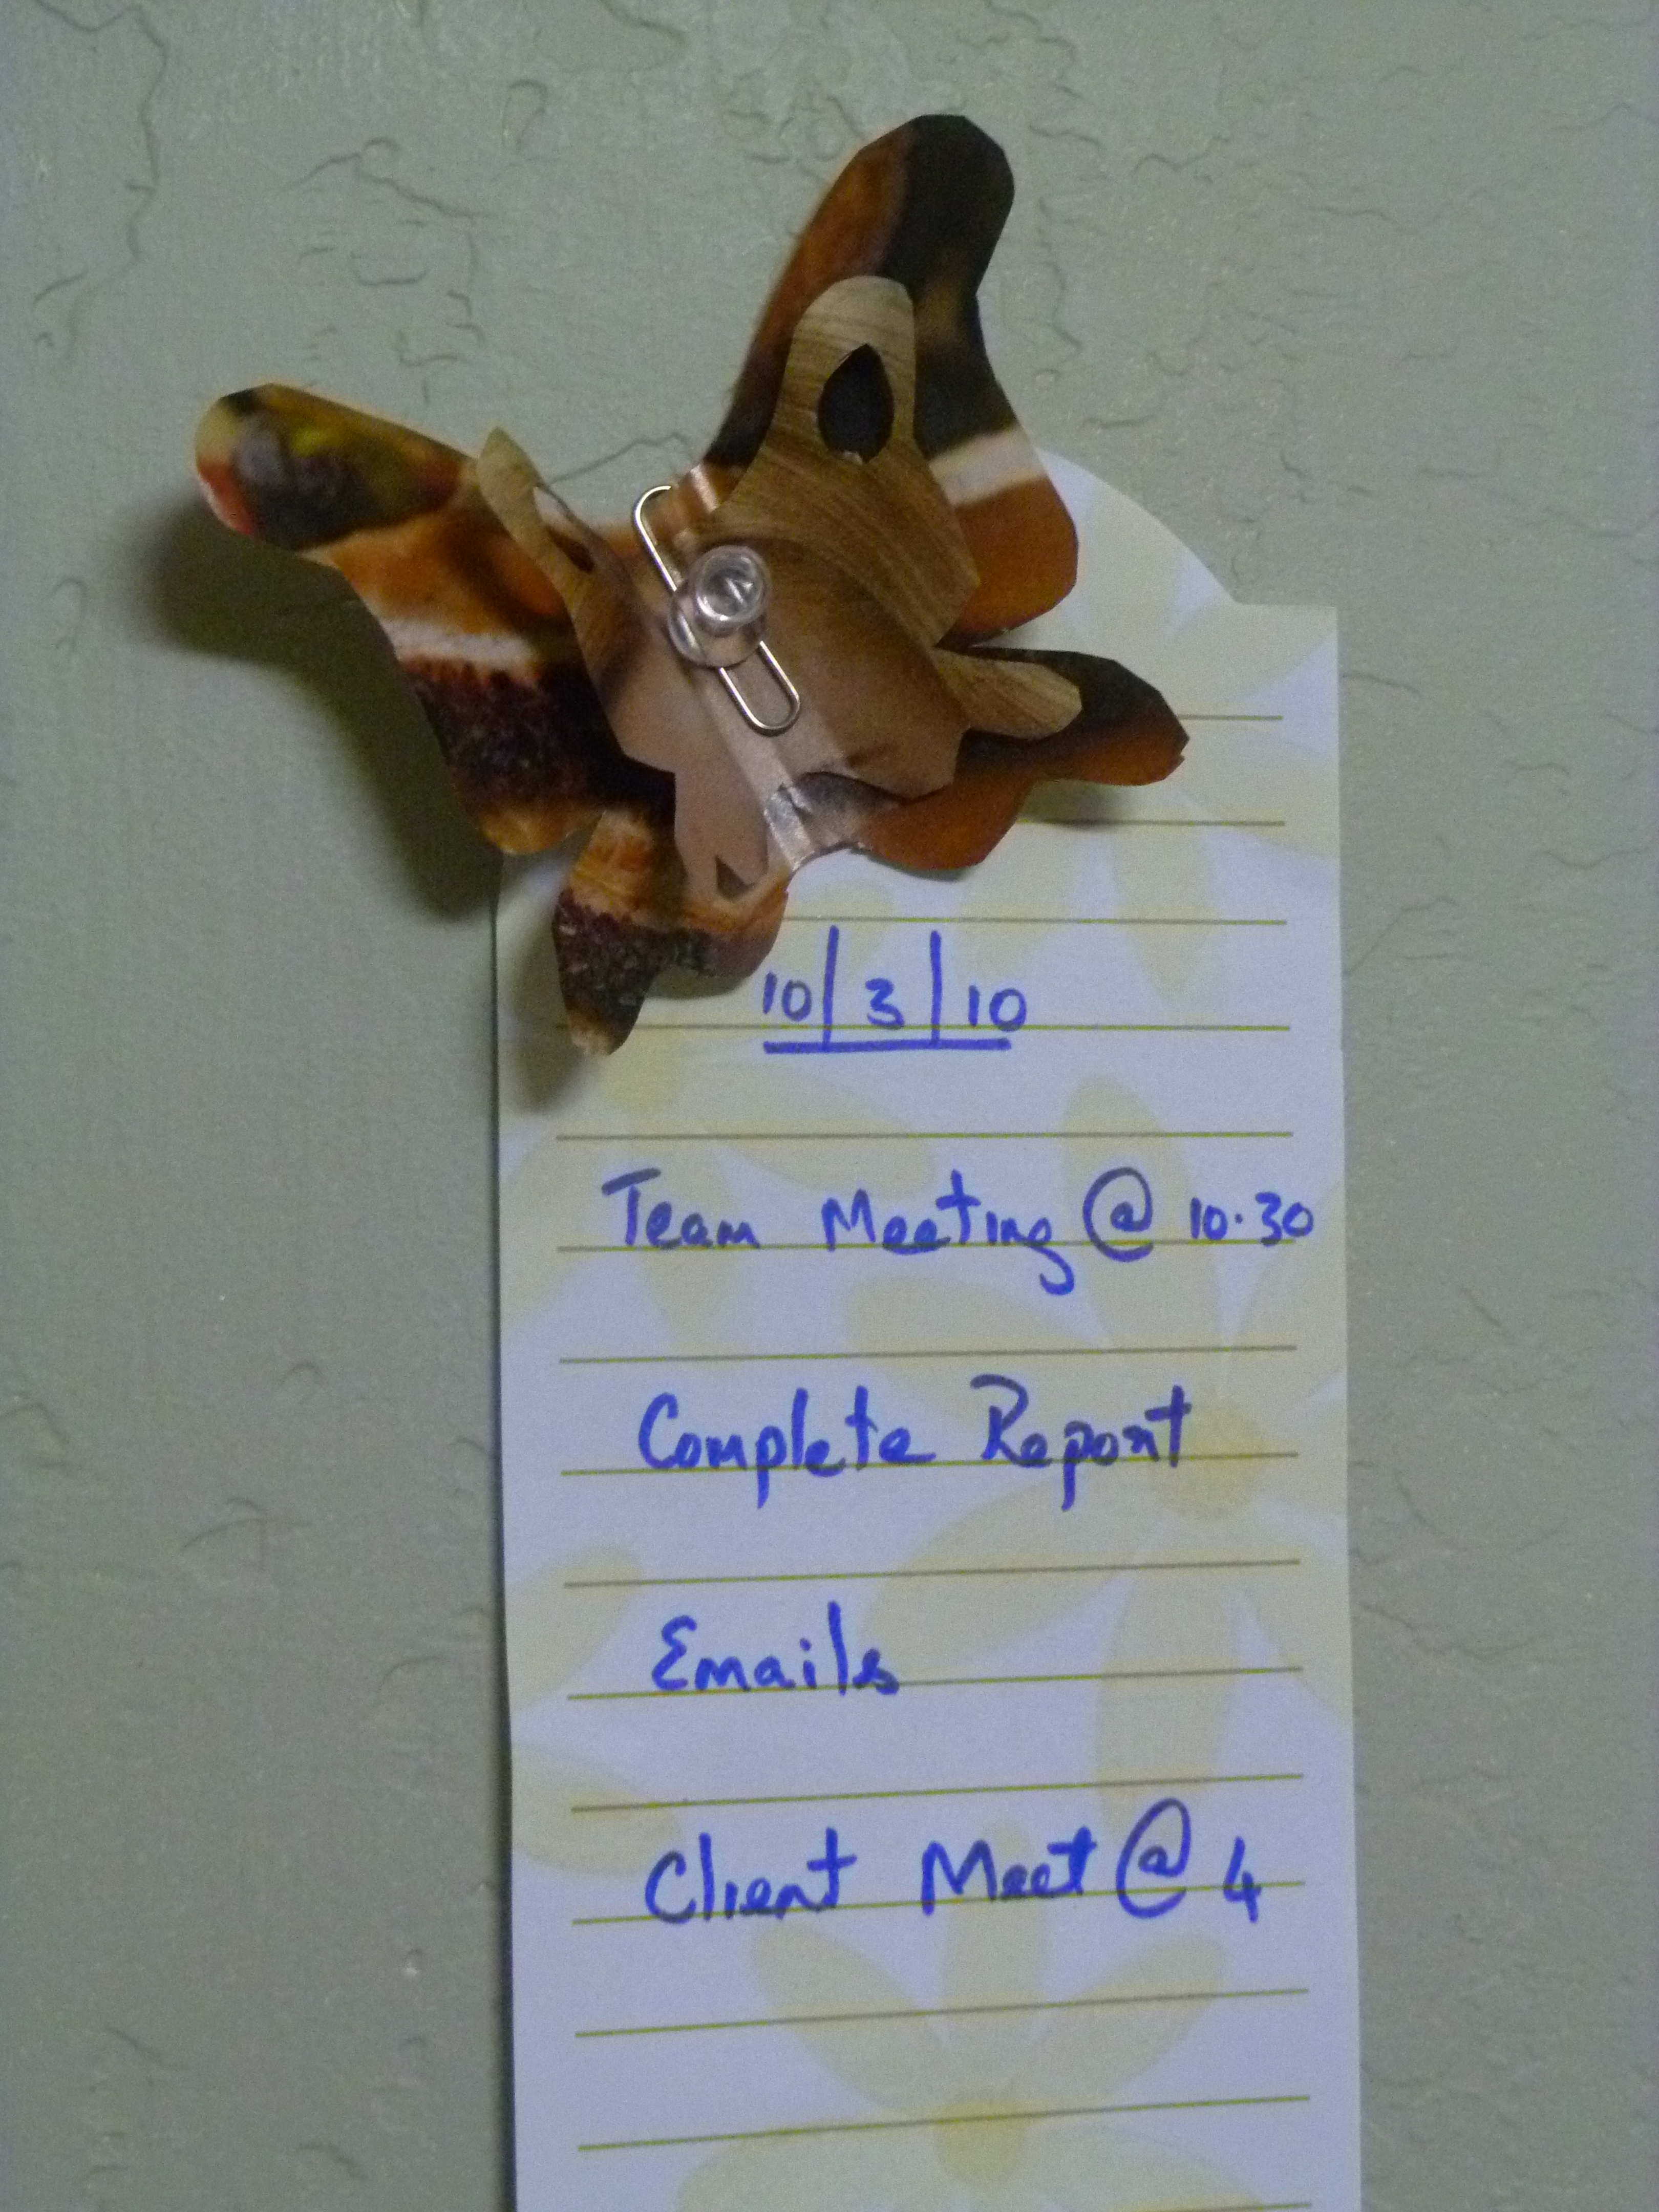 10|3|10
Team Meeting @ 10.30
Complete Report
Emails
Client Meet @ 4